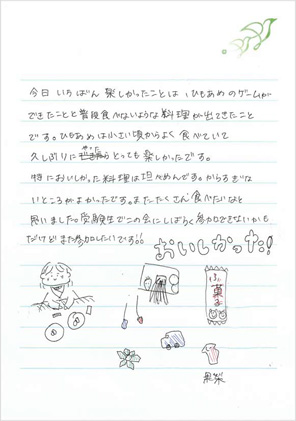 今日 いちばん 楽しかったことは、ひもあめのゲームが
できたことと普段食べないような料理が出てきたこと
です。ひもあめは小さい頃からよく食べていて
久しぶりに やったら とっても楽しかったです。
特においしかった料理は担々めんです。からすぎな
いところがよかったです。まだたくさん食べたいなと
思いました。受験生でこの会にしばらく参加できないかも
だけどまた参加したいです!!
おいしかった!
ふ菓子